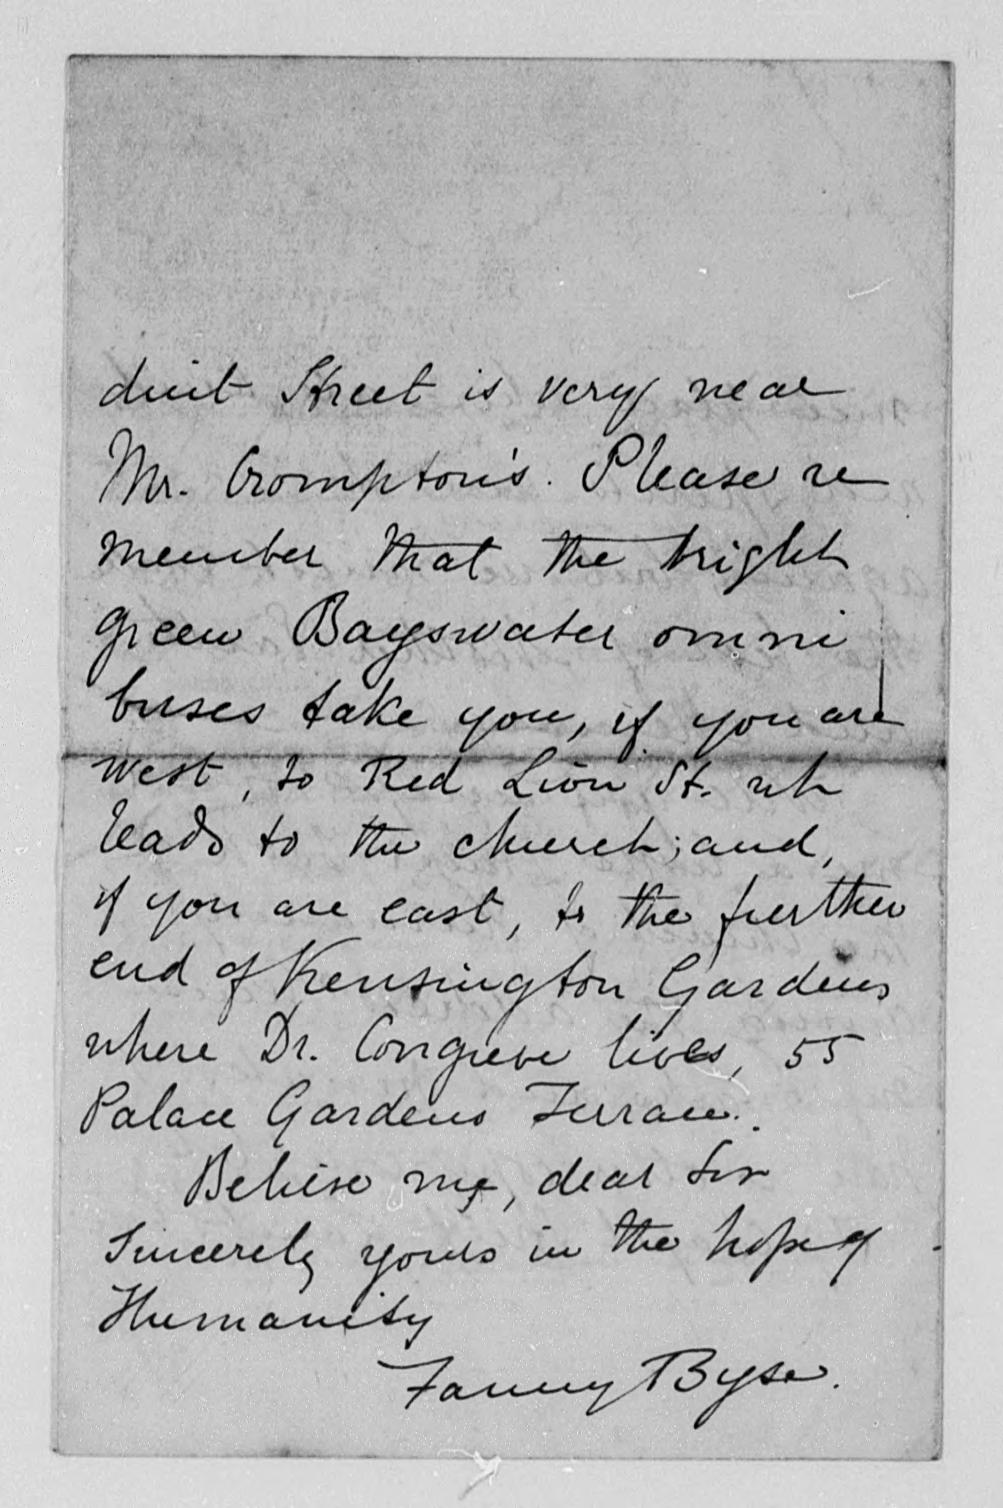 duit Street is very near
Mr. Crompton's. Please re
member that the bright
green Bayswater omni
buses take you, if you are
west, to Red Lion St. wh
leads to the church; and,
if you are east, to the further
end of Kensington Gardens
where Dr. Congreve lives, 55
Palace Gardens Terrace.
Believe me, dear Sir
Sincerely yours in the hope of
Humanity
Fanny Byse.